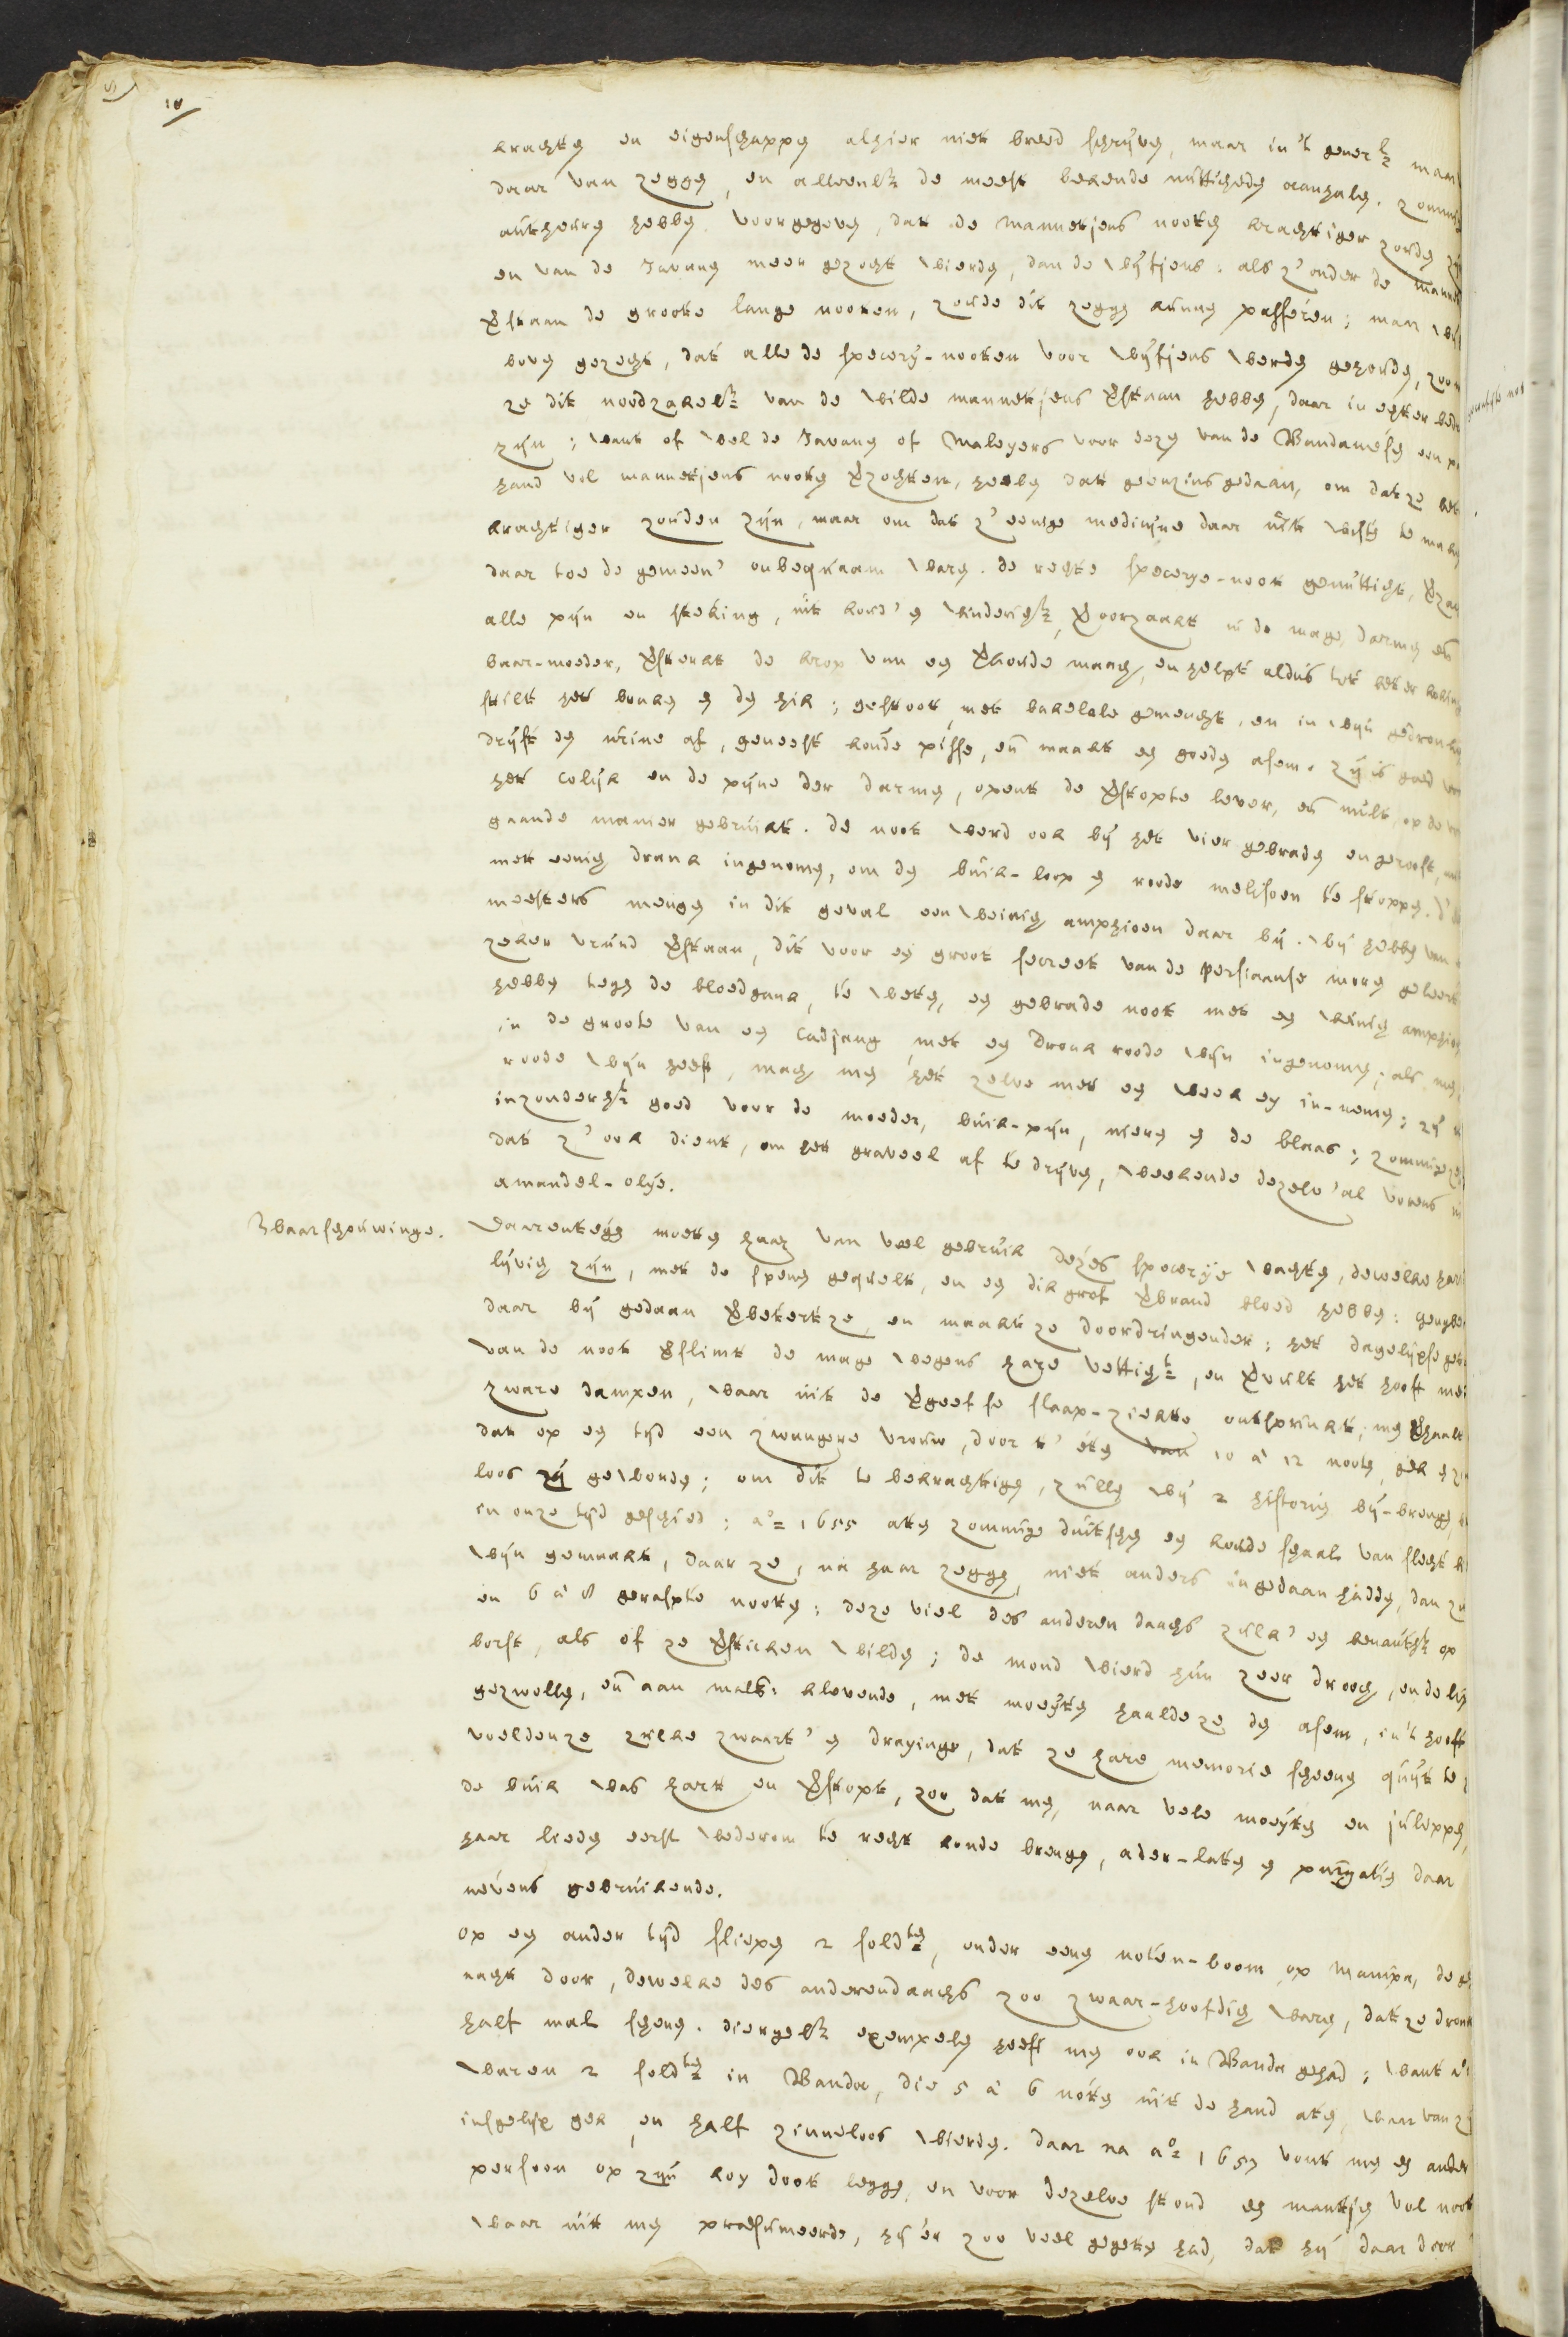 10
krachten en eigenschappen alhier niet breed schrijven, maar in 't gener.lk maar
daar van zeggen, en alleenlk de meest bekende nutticheden aanhalen. zommige
autheuren hebben voorgegeven, dat de mannetjens nooten krachtiger zouden zijn
en van de Javanen meer gezocht wierden, dan de wijfjens: als z' onder de manne
verstaan de groote lange nooten, zoude dit zeggen kunnen passéren; maar wij
boven gezecht, dat alle de specery-nooten voor wijfjens werden gehouden, zoo
ze dit noodzakelk van de wilde mannetjens verstaan hebben, daar in echter bedr
zijn; want of wel de Javanen of Maleyers voor dezen van de Bandanesen een pa
hand vol mannetjens nooten verzochten, hebben dat geenzins gedaan, om dat ze
krachtiger zouden zijn, maar om dat z' eenige medicijne daar uit wisten te maken
daar toe de gemeen' onbequaam waren. de rechte specerye-noot genutticht, verza
alle pijn en steking, uit koud' en winderichk veroorzaakt in de mage, darmen en
baar-moeder, versterkt de krop van en verkoude maach, en helpt aldus tot
stilt het braken en den hik; gestoot, met bakelele gemengt, en in wijn gedronken
drijft den urine af, geneest koude pisse, en maakt en goeden asem. zij is goed voor
het colijk en de pijne der darmen, opent de verstopte lever, en milt, op de voor
gaande manier gebruikt. de noot werd ook bij het vier gebraden en geroost,
met eenich drank ingenomen, om den buik-loop en roode melisoen te stoppen.
meesters mengen in dit geval een weinich amphioen daar bij. wij hebben van
zeker vrund verstaan, dit voor en groot secreet van de Persiaanse moren geleert
hebben tegen de bloedgank, te weten, en gebrade noot met en weinich amphioen
in de groote van en Cadjang met en dronk roode wijn ingenomen; als men
roode wijn heeft, mach men het zelve met en week ey in-nemen; zij is
inzonderhk goed voor de moeder, buik-pijn, nieren en de blaas; zommige zeg
dat z' ook dient, om het graveel af te drijven, weekende dezelv' al vorens in
amandel-olye.
Waarschouwinge. Daarentegen moeten haar van veel gebruik dezes specerije wachten, dewelke hart
lijvich zijn, met de speenen gequelt, en en dik grof verbrand bloed hebben: gengber
daar bij gedaan verbetert ze, en maakt ze doordringender; het dagelijxse geb
van de noot verslimt de mage wegens hare vettichk, en vervult het hooft met
zware dampen, waar uit de vergeetse slaap-ziekte ontsprinkt; men verhaalt
dat op en tijd een zwangere vrouw, door t' eten van 10 à 12 nooten, gek en zin
loos zij geworden; om dit te bekrachtigen, zullen wij 2 historien bij-brengen,
in onze tijd geschied: a.o 1655 aten zommige duitschen en koude schaal van slecht
wijn gemaakt, daar ze, na haar zeggen, niet anders in gedaan hadden, dan zu
en 6 à 8 geraspte nooten: deze viel des anderen daachs zulk' en benauthk op
borst, als of ze verstikken wilden; de mond wierd hun zeer drooch, en de lip
gezwollen, en aan malk. klevende, met moeyten haalde ze den asem, in 't hooft
voelden ze zulke zwaart' en drayinge, dat ze hare memorie scheenen quijt te
de buik was hart en verstopt, zoo dat men, naar vele moeyten en juleppen,
haar lieden eerst wederom te recht konde brengen, ader-laten en purgatien daar
nevens gebruikende.
Op en ander tijd sliepen 2 soldten, onder eenen noten-boom op Manipa, de
nacht door, dewelke des anderendaachs zoo zwaar-hoofdich waren, dat ze dronk
half mal schenen. diergelk exempelen heeft men ook in Banda gehad; want a.o
waren 2 soldten in Banda, die 5 à 6 noten uit de hand aten, waar van zij
insgelijx gek en half zinneloos wierden. daar na a.o 1657 vont men en ander
persoon op zijn koy doot leggen, en voor dezelve stond en mantjen vol noot
waar uit men praesumeerde, hij er zoo veel gegeten had, dat hij daar door